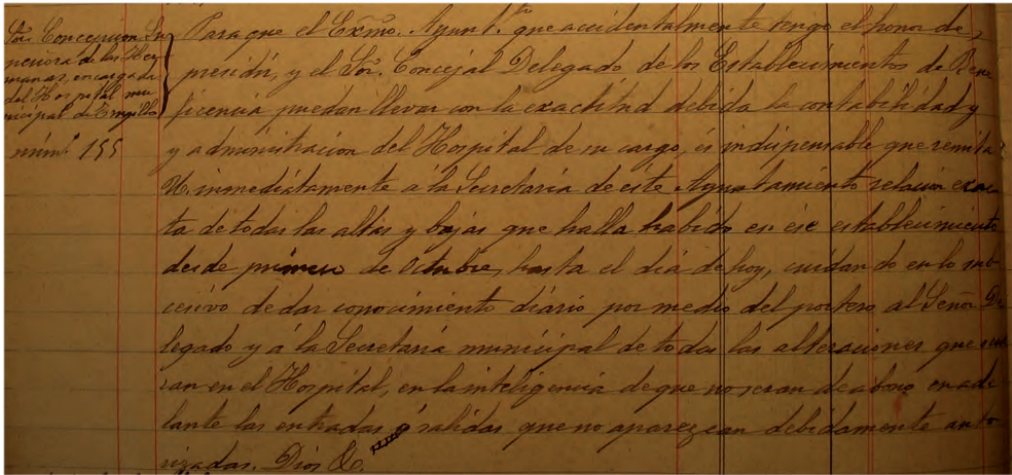 Sor Concepcion Su
periora de las Her
manas, encargada
del Hospital mu
nicipal de
núm. 155
Para que el Exmo. Ayunt.to que accidentalmente tengo el honor de
presidir, y el Sor. Concejal Delegado de los Establecimientos de Bene
ficencia puedan llevar con la exactitud debida la contabilidad y
y administracion del Hospital de su cargo, és indispensable que remita
V. inmediátamente á la Secretaría de este Ayuntamiento relacion exac
ta de todas las altas y bajas que halla habido en ése establecimiento
desde primero de Octubre, hasta el dia de hoy, cuidando en lo sub
cesivo de dar conocimiento diário por medio del portero al Señor De
legado y á la Secretaría municipal de todas las alteraciones que
ran en el Hospital, en la inteligencia de que no seran de abono en ade
lante las entradas ó salidas que no aparezcan debidamente auto
rizadas. Dios &.